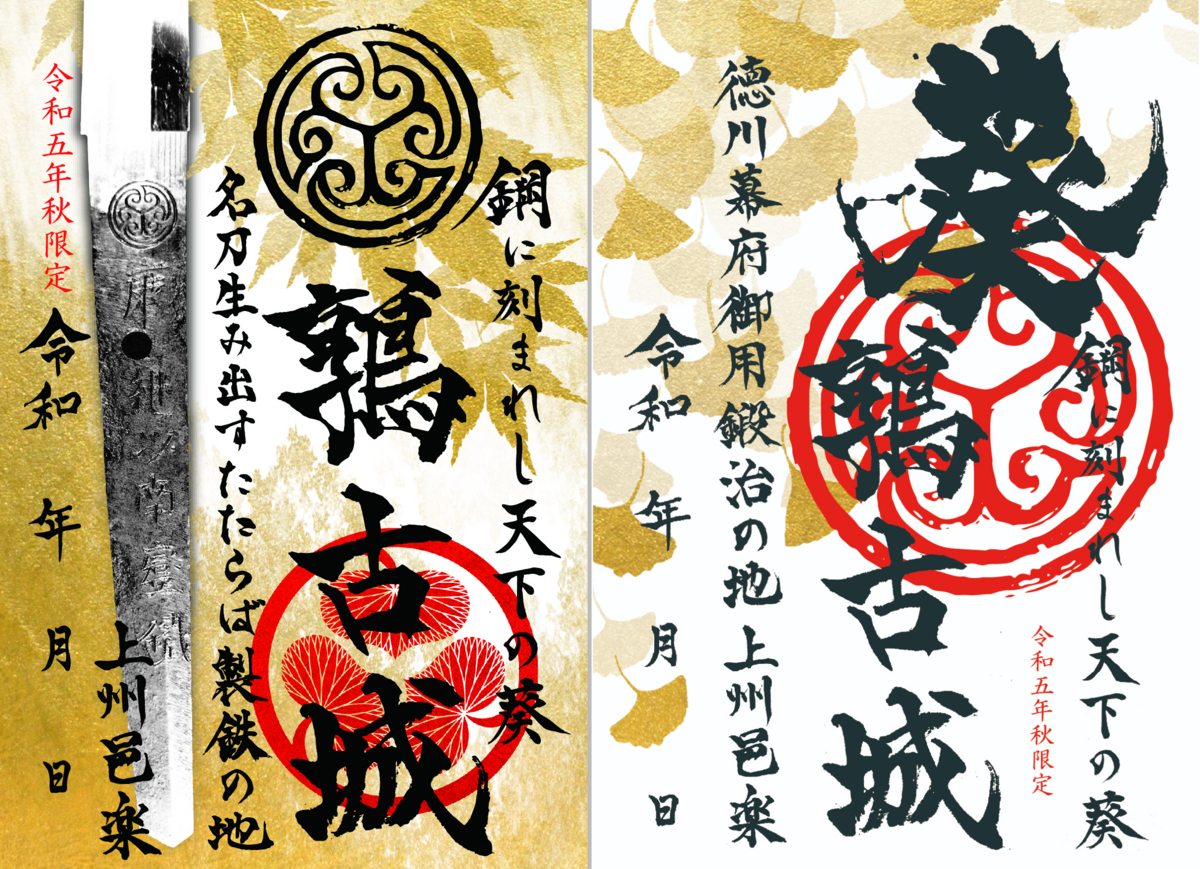 鋼に刻まれし天下の葵
鶉古城
名刀生み出すたたらば製鉄の地
上州邑楽
令和 年 月 日
令和五年秋限定
鋼に刻まれし天下の葵
令和五年秋限定
葵
鶉古城
徳川幕府御用鍛治の地 上州邑楽
令和 年 月 日